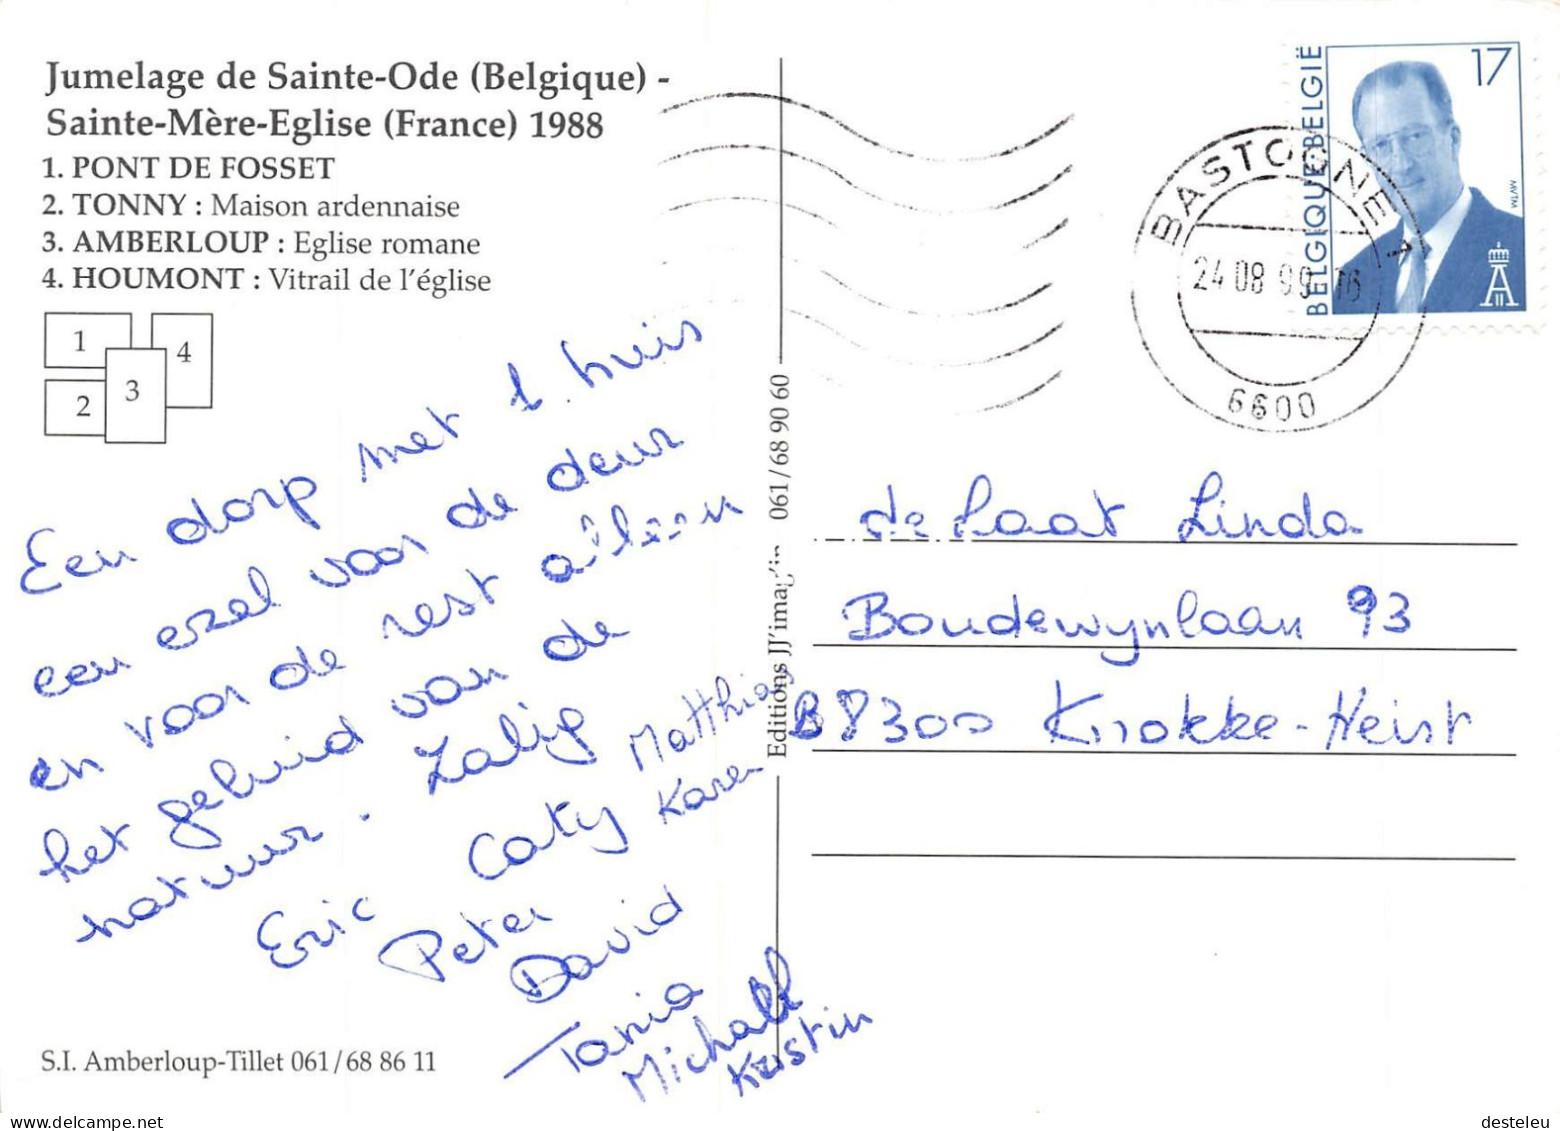 Jumelage de Sainte-Ode (Belgique) -
Sainte-Mère-Eglise (France) 1988
1. PONT DE FOSSET
2. TONNY : Maison ardennaise
3. AMBERLOUP : Eglise romane
4. HOUMONT : Vitrail de l'église
1
4
2
3
Een dorp met 1. huis
een ezel voor de deur
en voor de rest alleen
het geluid van de
natuur. Zalig
Eric Caty Matthias
Karen
Peter
David
Tania
Michall
Kristin
S.I. Amberloup-Tillet 061/68 86 11
Editions JJ'imag'in 061/68 90 60
BELGIQUE-BELGIË
17
MVTM
BASTOGNE 1
24 08 99 16
6600
de Laat Linda
Boudewynlaan 93
B 8300 Knokke-Heist
desteleu